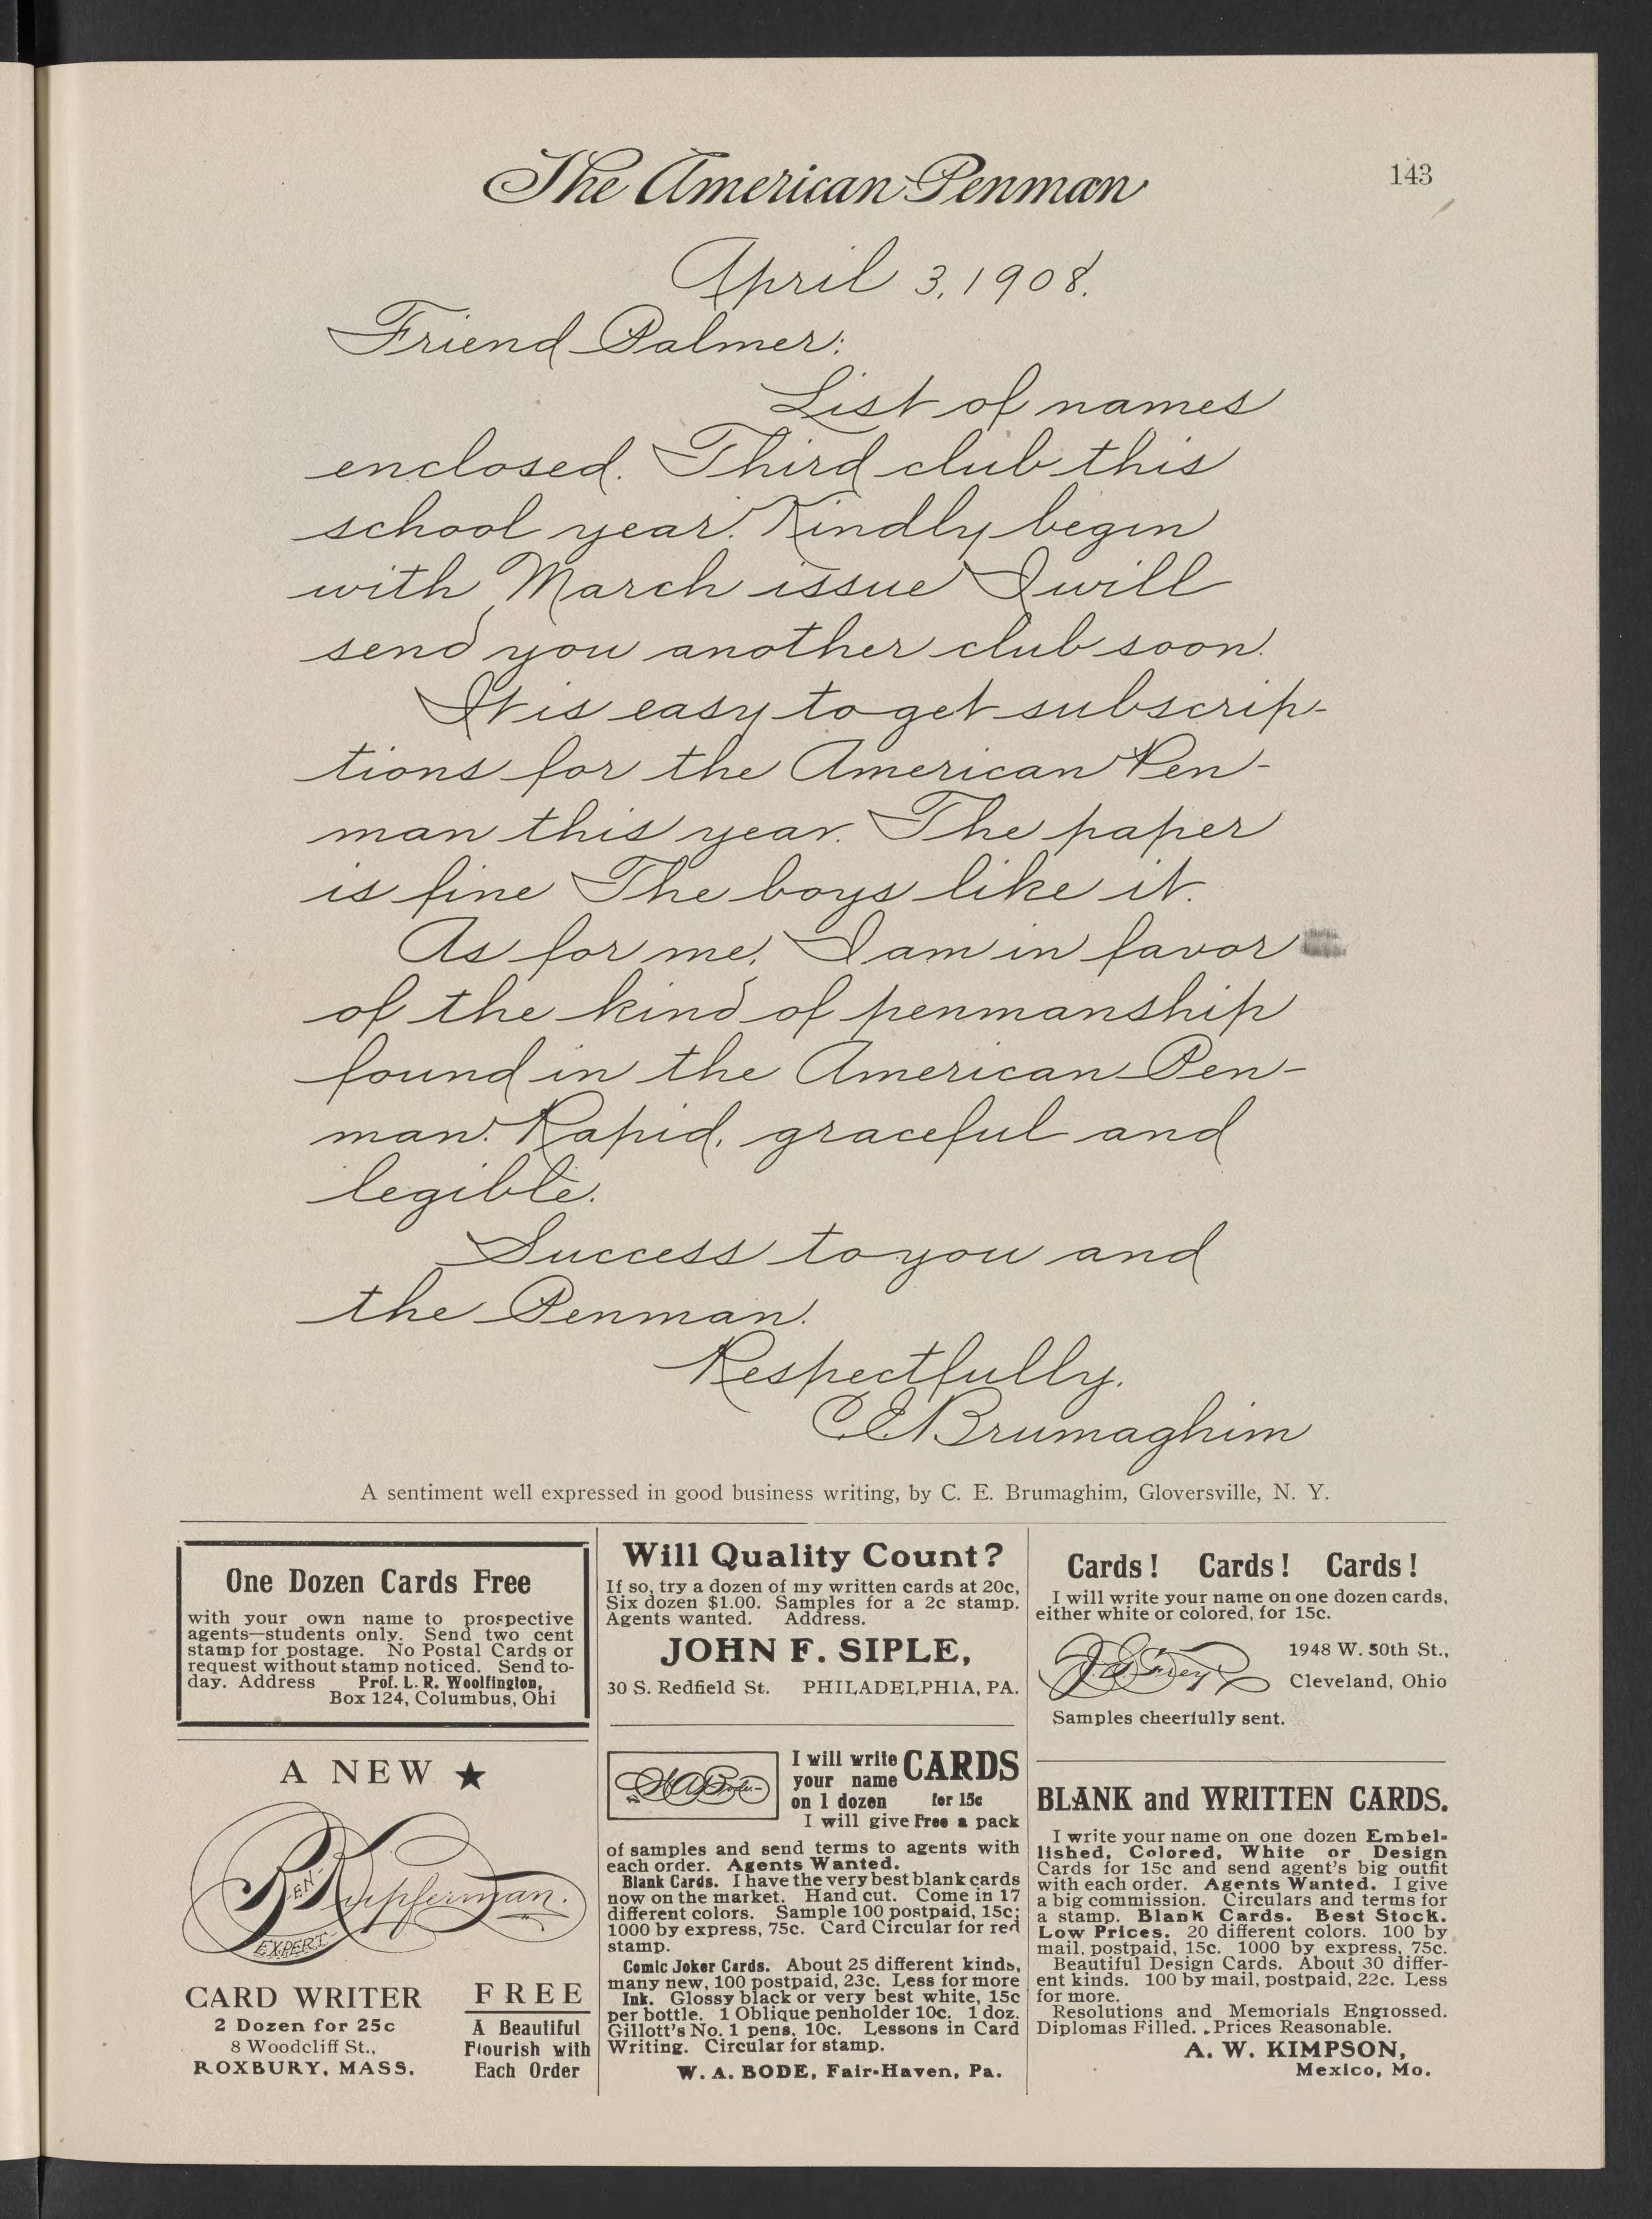 The American Penman
143
April 3, 1908.
Friend Palmer:
List of names
enclosed. Third club this
school year. Kindly begin
with March issue I will
send you another club soon.
It is easy to get subscrip-
tions for the American Pen-
man this year. The paper
is fine The boys like it.
As for me, I am in favor
of the kind of penmanship
found in the American Pen-
man. Rapid, graceful and
legible.
Success to you and
the Penman.
Respectfully,
C E Brumaghim
A sentiment well expressed in good business writing, by C. E. Brumaghim, Gloversville, N. Y.
One Dozen Cards Free
with your own name to prospective
agents—students only. Send two cent
stamp for postage. No Postal Cards or
request without stamp noticed. Send to-
day. Address Prof. L. R. Woolfington,
Box 124, Columbus, Ohi
A NEW ★
BEN Kupferman.
EXPERT
CARD WRITER
2 Dozen for 25c
8 Woodcliff St.,
ROXBURY, MASS.
FREE
A Beautiful
Flourish with
Each Order
Will Quality Count?
If so, try a dozen of my written cards at 20c,
Six dozen $1.00. Samples for a 2c stamp.
Agents wanted. Address.
JOHN F. SIPLE,
30 S. Redfield St. PHILADELPHIA, PA.
W A Bode
I will write CARDS
your name
on 1 dozen for 15c
I will give Free a pack
of samples and send terms to agents with
each order. Agents Wanted.
Blank Cards. I have the very best blank cards
now on the market. Hand cut. Come in 17
different colors. Sample 100 postpaid, 15c;
1000 by express, 75c. Card Circular for red
stamp.
Comic Joker Cards. About 25 different kinds,
many new, 100 postpaid, 23c. Less for more
Ink. Glossy black or very best white, 15c
per bottle. 1 Oblique penholder 10c. 1 doz.
Gillott's No. 1 pens, 10c. Lessons in Card
Writing. Circular for stamp.
W. A. BODE, Fair-Haven, Pa.
Cards! Cards! Cards!
I will write your name on one dozen cards,
either white or colored, for 15c.
1948 W. 50th St.,
Cleveland, Ohio
Samples cheerfully sent.
BLANK and WRITTEN CARDS.
I write your name on one dozen Embel-
lished, Colored, White or Design
Cards for 15c and send agent's big outfit
with each order. Agents Wanted. I give
a big commission. Circulars and terms for
a stamp. Blank Cards. Best Stock.
Low Prices. 20 different colors. 100 by
mail, postpaid, 15c. 1000 by express, 75c.
Beautiful Design Cards. About 30 differ-
ent kinds. 100 by mail, postpaid, 22c. Less
for more.
Resolutions and Memorials Engrossed.
Diplomas Filled. Prices Reasonable.
A. W. KIMPSON,
Mexico, Mo.